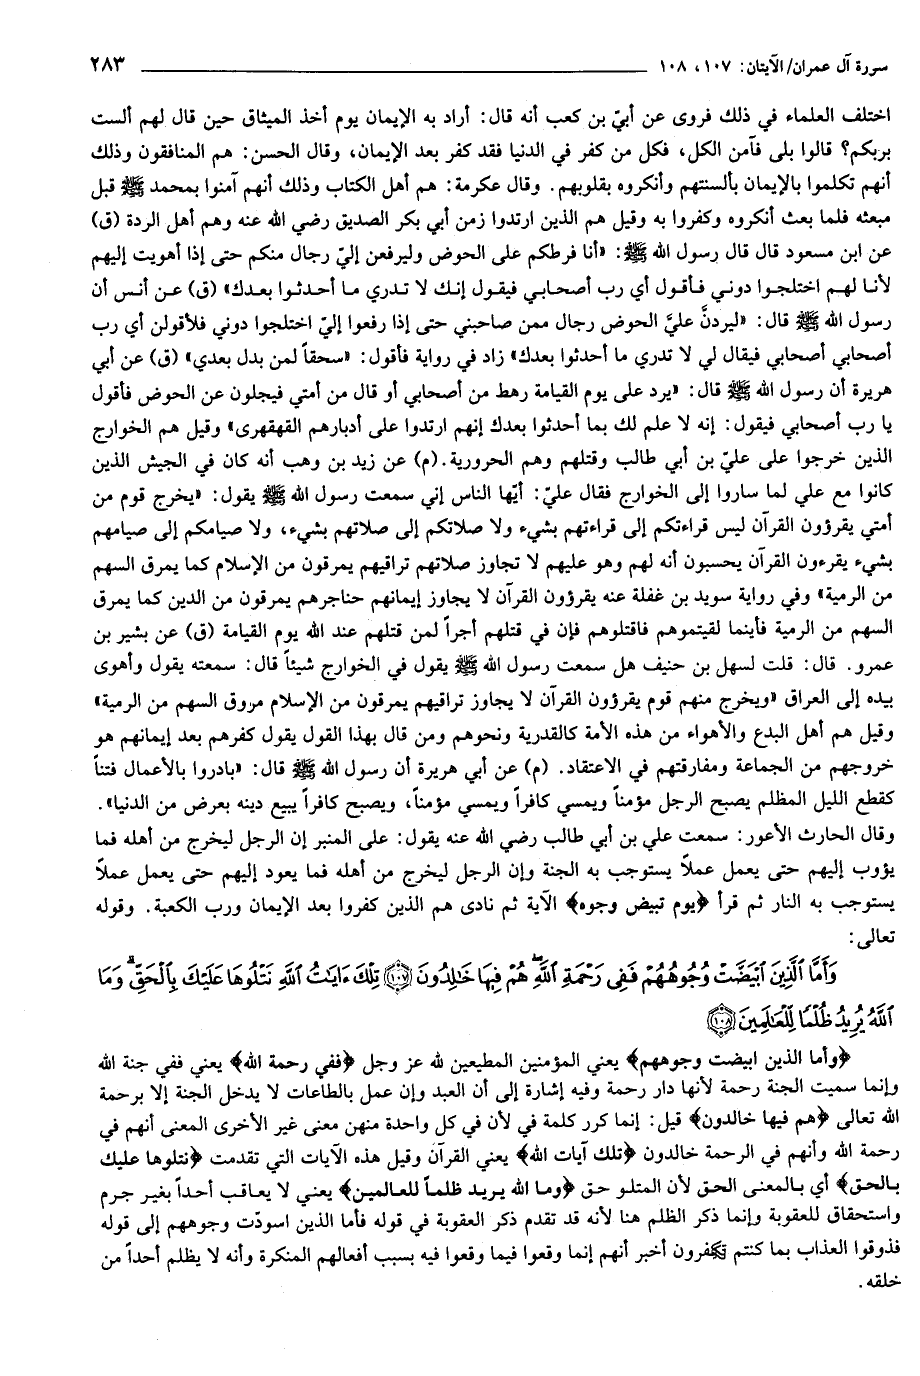 سورة آل عمران/ الآيتان: ١٠٧، ١٠٨ ٢٨٣
اختلف العلماء في ذلك فروى عن أبيّ بن كعب أنه قال: أراد به الإيمان يوم أخذ الميثاق حين قال لهم ألست
بربكم؟ قالوا بلى فآمن الكل، فكل من كفر في الدنيا فقد كفر بعد الإيمان، وقال الحسن: هم المنافقون وذلك
أنهم تكلموا بالإيمان بألسنتهم وأنكروه بقلوبهم. وقال عكرمة: هم أهل الكتاب وذلك أنهم آمنوا بمحمد ﷺ قبل
مبعثه فلما بعث أنكروه وكفروا به وقيل هم الذين ارتدوا زمن أبي بكر الصديق رضي الله عنه وهم أهل الردة (ق)
عن ابن مسعود قال قال رسول الله ﷺ: «أنا فرطكم على الحوض وليرفعن إليّ رجال منكم حتى إذا أهويت إليهم
لأنا لهم اختلجوا دوني فأقول أي رب أصحابي فيقول إنك لا تدري ما أحدثوا بعدك» (ق) عن أنس أن
رسول الله ﷺ قال: «ليردنَّ عليَّ الحوض رجال ممن صاحبني حتى إذا رفعوا إليّ اختلجوا دوني فلأقولن أي رب
أصحابي أصحابي فيقال لي لا تدري ما أحدثوا بعدك» زاد في رواية فأقول: «سحقاً لمن بدل بعدي» (ق) عن أبي
هريرة أن رسول الله ﷺ قال: «يرد على يوم القيامة رهط من أصحابي أو قال من أمتي فيجلون عن الحوض فأقول
يا رب أصحابي فيقول: إنه لا علم لك بما أحدثوا بعدك إنهم ارتدوا على أدبارهم القهقهرى» وقيل هم الخوارج
الذين خرجوا على عليّ بن أبي طالب وقتلهم وهم الحرورية. (م) عن زيد بن وهب أنه كان في الجيش الذين
كانوا مع علي لما ساروا إلى الخوارج فقال عليّ: أيّها الناس إني سمعت رسول الله ﷺ يقول: «يخرج قوم من
أمتي يقرؤون القرآن ليس قراءتكم إلى قراءتهم بشيء ولا صلاتكم إلى صلاتهم بشيء، ولا صيامكم إلى صيامهم
بشيء يقرءون القرآن يحسبون أنه لهم وهو عليهم لا تجاوز صلاتهم تراقيهم يمرقون من الإسلام كما يمرق السهم
من الرمية» وفي رواية سويد بن غفلة عنه يقرؤون القرآن لا يجاوز إيمانهم حناجرهم يمرقون من الدين كما يمرق
السهم من الرمية فأينما لقيتموهم فاقتلوهم فإن في قتلهم أجراً لمن قتلهم عند الله يوم القيامة (ق) عن بشير بن
عمرو. قال: قلت لسهل بن حنيف هل سمعت رسول الله ﷺ يقول في الخوارج شيئاً قال: سمعته يقول وأهوى
بيده إلى العراق «ويخرج منهم قوم يقرؤون القرآن لا يجاوز تراقيهم يمرقون من الإسلام مروق السهم من الرمية»
وقيل هم أهل البدع والأهواء من هذه الأمة كالقدرية ونحوهم ومن قال بهذا القول يقول كفرهم بعد إيمانهم هو
خروجهم من الجماعة ومفارقتهم في الاعتقاد. (م) عن أبي هريرة أن رسول الله ﷺ قال: «بادروا بالأعمال فتناً
كقطع الليل المظلم يصبح الرجل مؤمناً ويمسي كافراً ويمسي مؤمناً، ويصبح كافراً يبيع دينه بعرض من الدنيا».
وقال الحارث الأعور: سمعت علي بن أبي طالب رضي الله عنه يقول: على المنبر إن الرجل ليخرج من أهله فما
يؤوب إليهم حتى يعمل عملاً يستوجب به الجنة وإن الرجل ليخرج من أهله فما يعود إليهم حتى يعمل عملاً
يستوجب به النار ثم قرأ ﴿يوم تبيض وجوه﴾ الآية ثم نادى هم الذين كفروا بعد الإيمان ورب الكعبة. وقوله
تعالى:
وَأَمَّا ٱلَّذِينَ ٱبْيَضَّتْ وُجُوهُهُمْ فَفِى رَحْمَةِ ٱللَّهِ هُمْ فِيهَا خَـٰلِدُونَ ۝١٠٧ تِلْكَ ءَايَـٰتُ ٱللَّهِ نَتْلُوهَا عَلَيْكَ بِٱلْحَقِّ ۗ وَمَا
ٱللَّهُ يُرِيدُ ظُلْمًا لِّلْعَـٰلَمِينَ ۝١٠٨
﴿وأما الذين ابيضت وجوههم﴾ يعني المؤمنين المطيعين لله عز وجل ﴿ففي رحمة الله﴾ يعني ففي جنة الله
وإنما سميت الجنة رحمة لأنها دار رحمة وفيه إشارة إلى أن العبد وإن عمل بالطاعات لا يدخل الجنة إلا برحمة
الله تعالى ﴿هم فيها خالدون﴾ قيل: إنما كرر كلمة في لأن في كل واحدة منهن معنى غير الأخرى المعنى أنهم في
رحمة الله وأنهم في الرحمة خالدون ﴿تلك آيات الله﴾ يعني القرآن وقيل هذه الآيات التي تقدمت ﴿نتلوها عليك
بالحق﴾ أي بالمعنى الحق لأن المتلو حق ﴿وما الله يريد ظلماً للعالمين﴾ يعني لا يعاقب أحداً بغير جرم
واستحقاق للعقوبة وإنما ذكر الظلم هنا لأنه قد تقدم ذكر العقوبة في قوله فأما الذين اسودّت وجوههم إلى قوله
فذوقوا العذاب بما كنتم تكفرون أخبر أنهم إنما وقعوا فيما وقعوا فيه بسبب أفعالهم المنكرة وأنه لا يظلم أحداً من
خلقه.